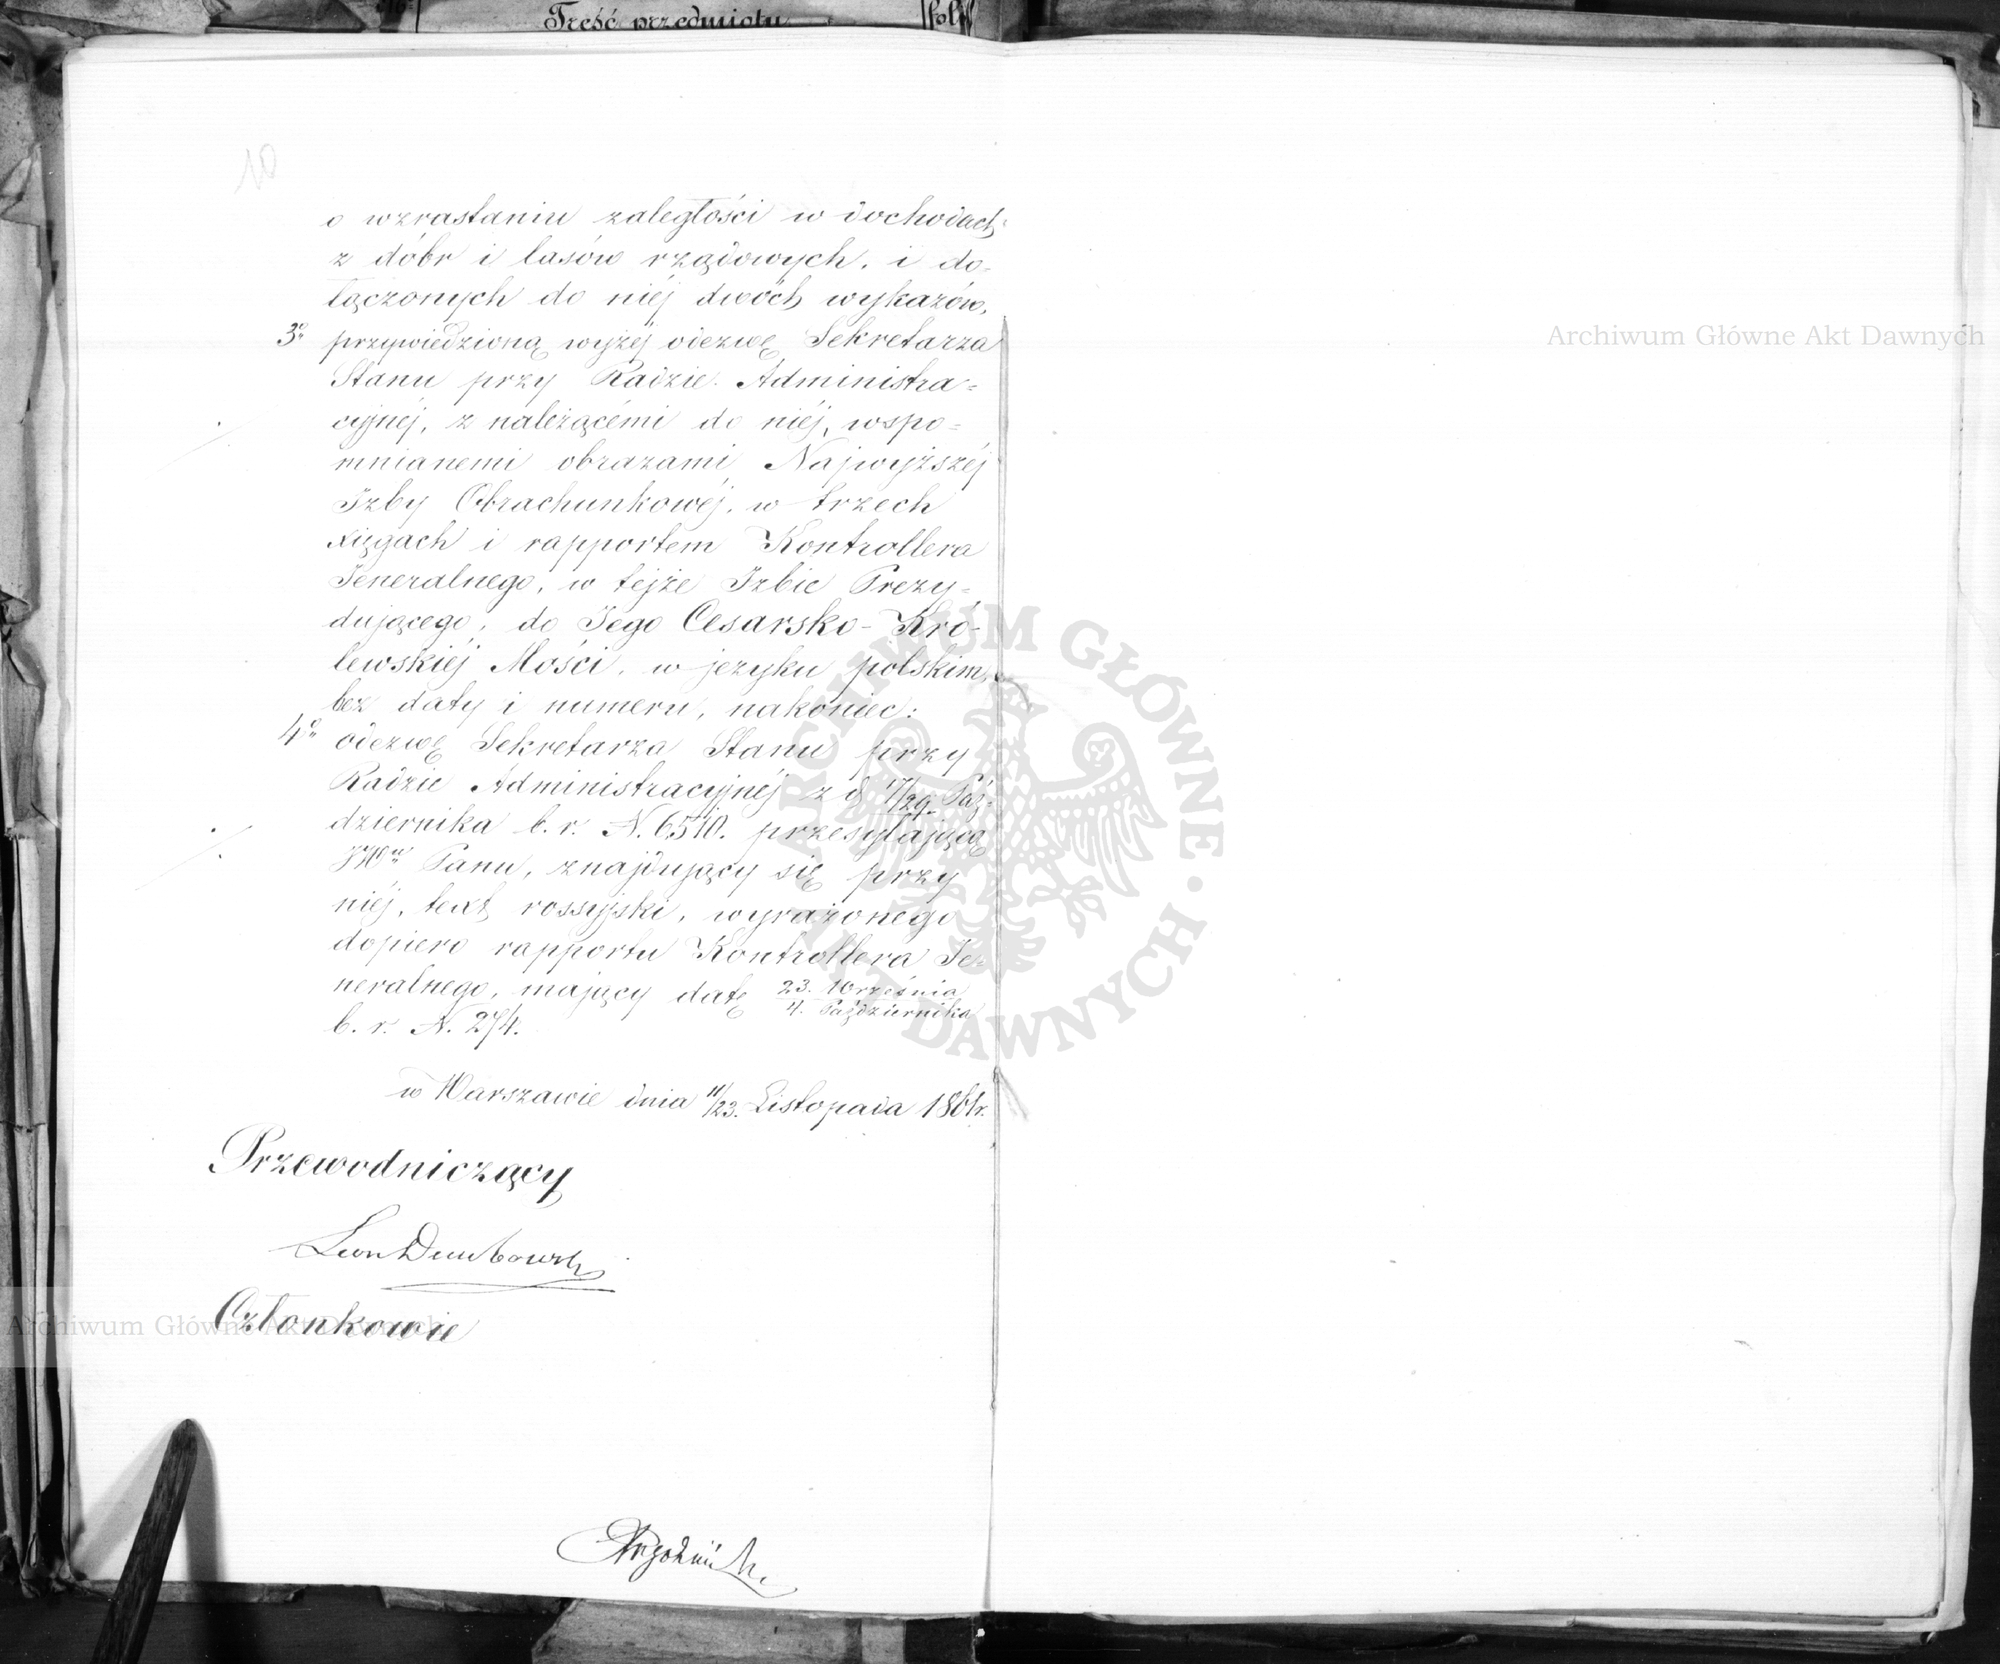 Treść przedmiotu
10
o wzrastaniu zaległości w dochodach
z dóbr i lasów rządowych, i do-
łączonych do niéj dwóch wykazów,
3o przywiedzioną wyżéj odezwę Sekretarza
Stanu przy Radzie Administra-
cyjnéj, z należącémi do niéj, wspo-
mnianemi obrazami Najwyższéj
Izby Obrachunkowéj, w trzech
xięgach i rapportem Kontrollera
Jeneralnego, w tejże Izbie Prezy-
dującego, do Jego Cesarsko-Kró-
lewskiéj Mości, w języku polskim,
bez daty i numeru, nakoniec:
4o odezwę Sekretarza Stanu przy
Radzie Administracyjnéj z d 17/29. Paź-
dziernika b. r. N. 6510. przesyłającą
JWmu Panu, znajdujący się przy
niéj, text rossyjski, wyrażonego
dopiero rapportu Kontrollera Je-
neralnego, mający datę 23. Września
4. Października
b. r. N. 274.
w Warszawie dnia 11/23. Listopada 1861r.
Przewodniczący
Leon Dembowski
Członkowie
Archiwum Główne Akt Dawnych
Archiwum Główne Akt Dawnych
ARCHIWUM GŁÓWNE AKT DAWNYCH